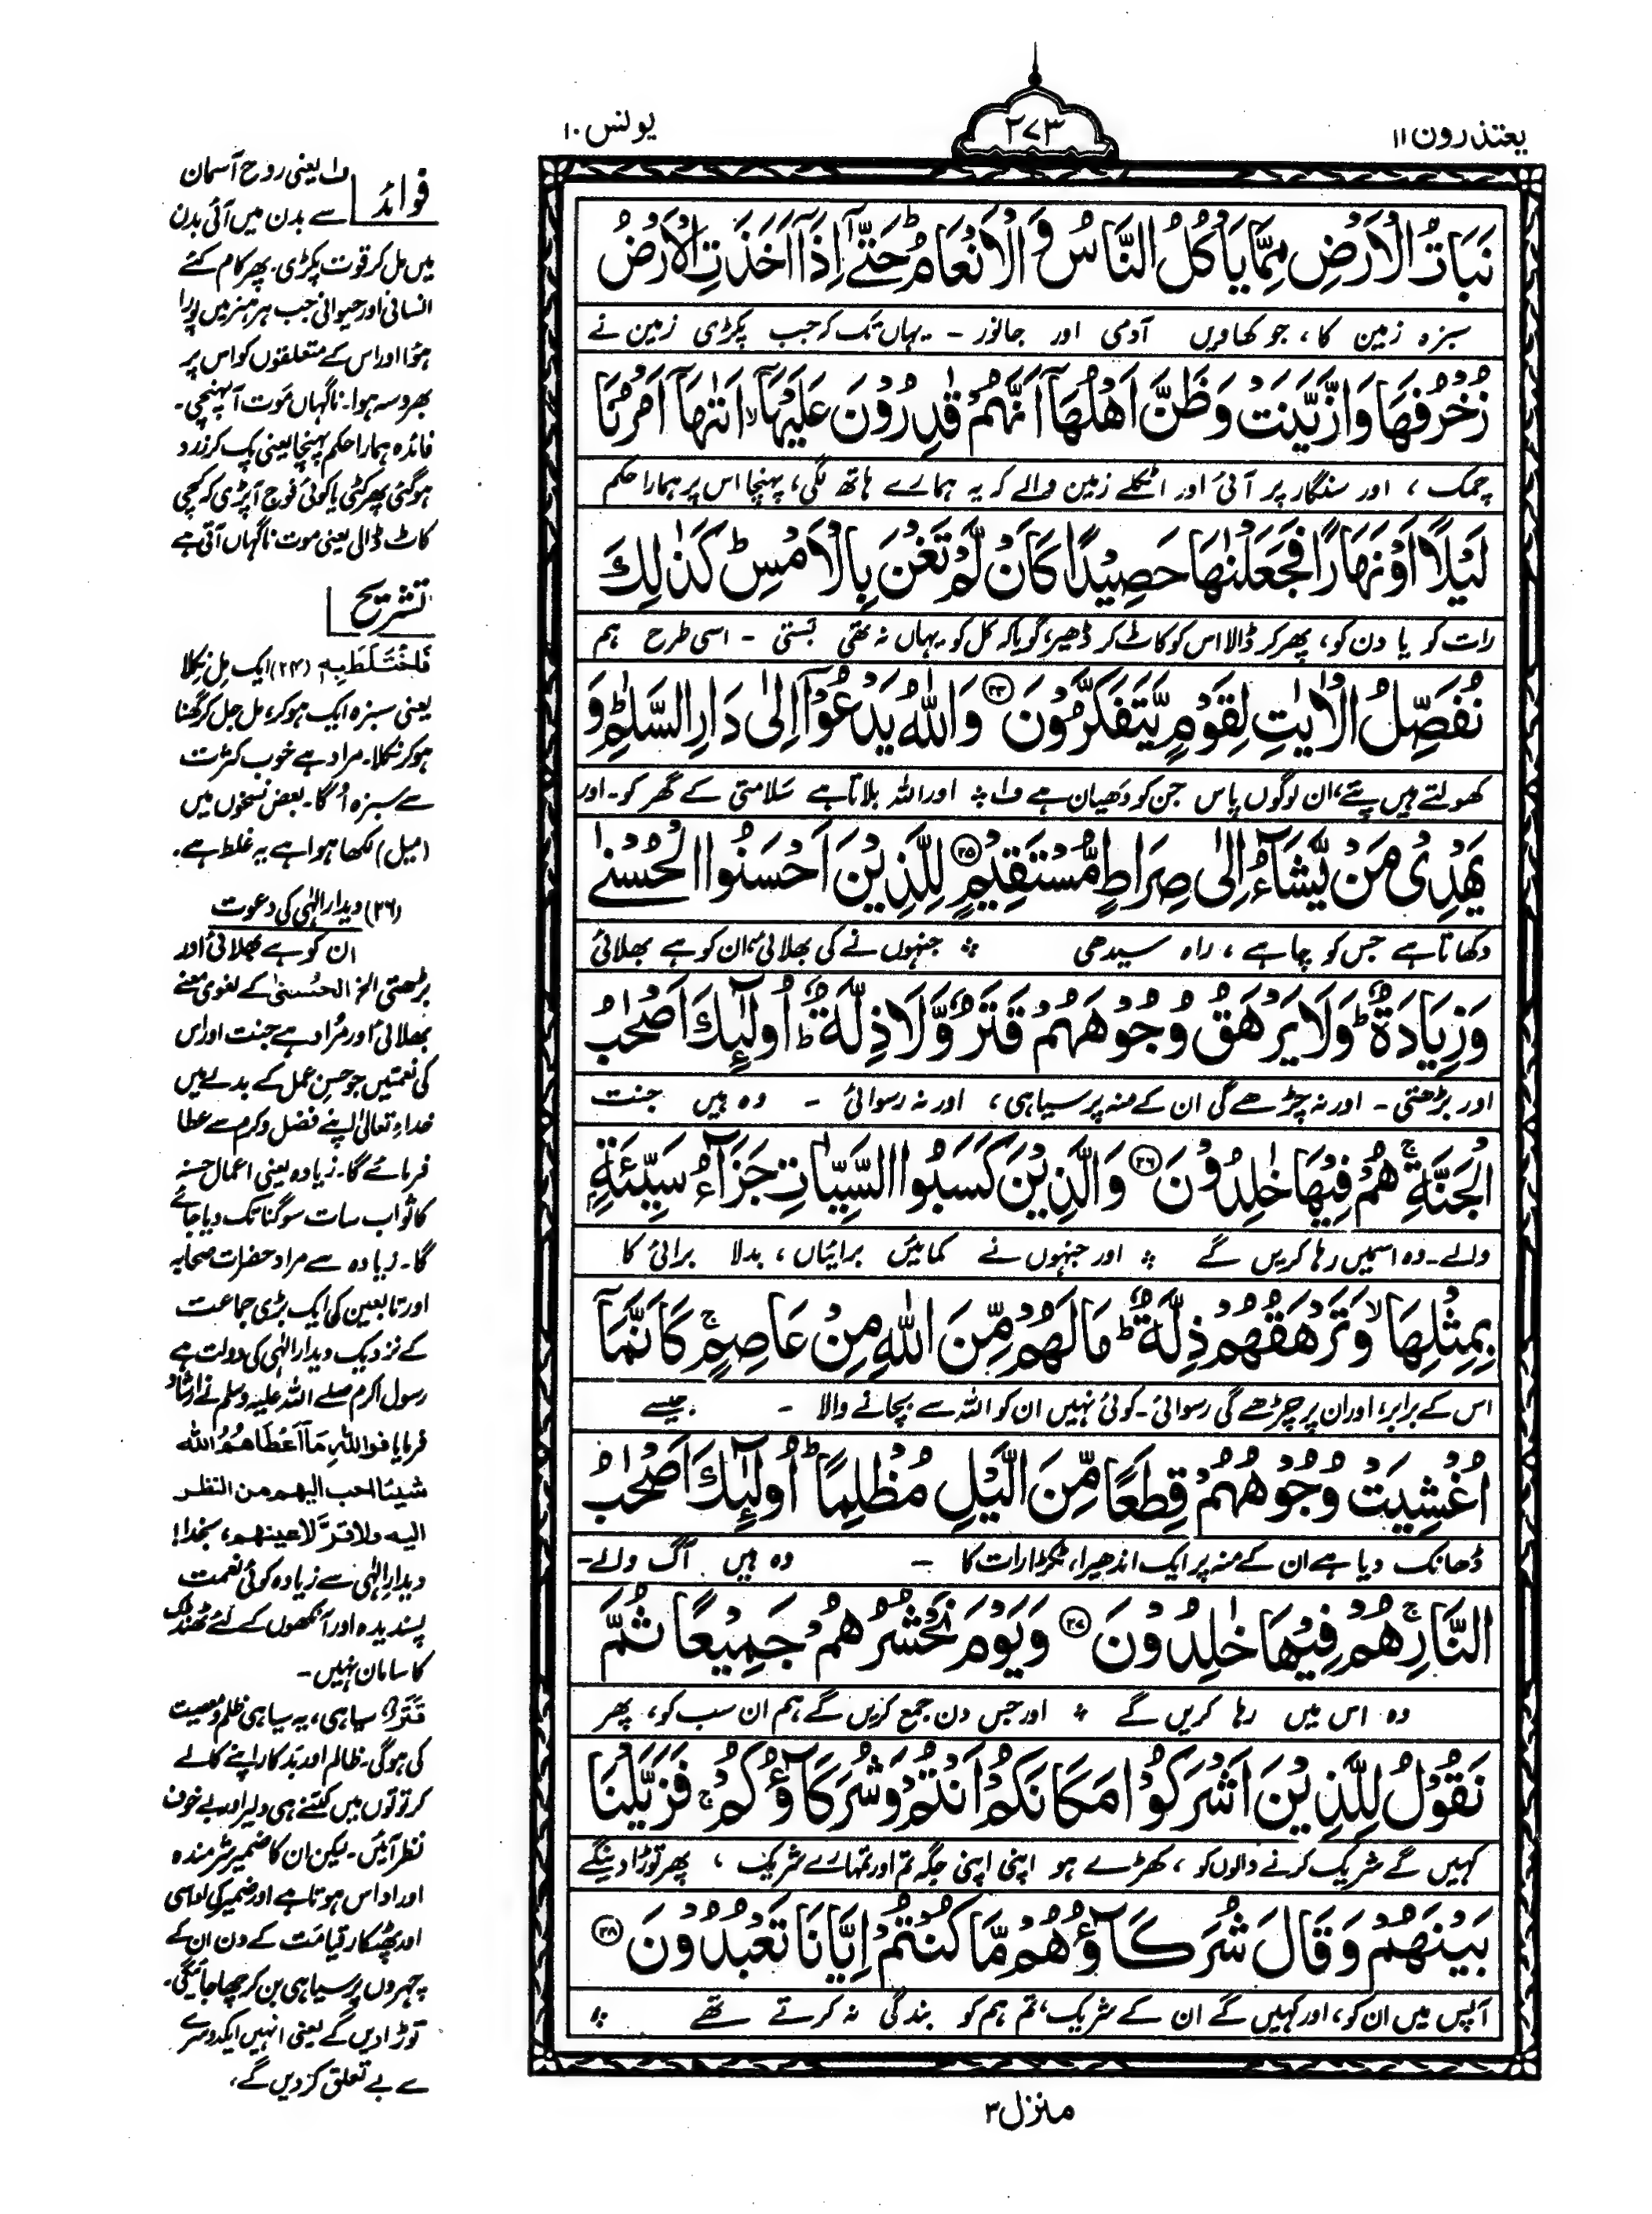 یعتذرون ۱۱
۲۷۳
یونس ۱۰
نَبَاتُ الْاَرْضِ مِمَّا یَاْكُلُ النَّاسُ وَ الْاَنْعَامُ ؕ حَتّٰۤی اِذَاۤ اَخَذَتِ الْاَرْضُ
سبزہ زمین کا، جو کھاویں آدمی اور جانور ۔ یہاں تک کہ جب پکڑی زمین نے
زُخْرُفَهَا وَ ازَّیَّنَتْ وَ ظَنَّ اَهْلُهَاۤ اَنَّهُمْ قٰدِرُوْنَ عَلَیْهَاۤ ۙ اَتٰىهَاۤ اَمْرُنَا
چمک، اور سنگار پر آئی اور اٹکلے زمین والے کہ یہ ہمارے ہاتھ لگی، پہنچا اس پر ہمارا حکم
لَیْلًا اَوْ نَهَارًا فَجَعَلْنٰهَا حَصِیْدًا كَاَنْ لَّمْ تَغْنَ بِالْاَمْسِ ؕ كَذٰلِكَ
رات کو یا دن کو، پھر کر ڈالا اس کو کاٹ کر ڈھیر، گویا کہ کل کو یہاں نہ تھی بستی ۔ اسی طرح ہم
نُفَصِّلُ الْاٰیٰتِ لِقَوْمٍ یَّتَفَكَّرُوْنَ ﴿۲۴﴾ وَ اللّٰهُ یَدْعُوْۤا اِلٰی دَارِ السَّلٰمِ ؕ وَ
کھولتے ہیں پتے، ان لوگوں پاس جن کو دھیان ہے ف۱ ؞ اور اللہ بلاتا ہے سلامتی کے گھر کو۔ اور
یَهْدِیْ مَنْ یَّشَآءُ اِلٰی صِرَاطٍ مُّسْتَقِیْمٍ ﴿۲۵﴾ لِلَّذِیْنَ اَحْسَنُوا الْحُسْنٰی
دکھاتا ہے جس کو چاہے، راہ سیدھی ؞ جنہوں نے کی بھلائی، ان کو ہے بھلائی
وَ زِیَادَةٌ ؕ وَ لَا یَرْهَقُ وُجُوْهَهُمْ قَتَرٌ وَّ لَا ذِلَّةٌ ؕ اُولٰٓىِٕكَ اَصْحٰبُ
اور بڑھتی ۔ اور نہ چڑھے گی ان کے منہ پر سیاہی، اور نہ رسوائی ۔ وہ ہیں جنت
الْجَنَّةِ ۚ هُمْ فِیْهَا خٰلِدُوْنَ ﴿۲۶﴾ وَ الَّذِیْنَ كَسَبُوا السَّیِّاٰتِ جَزَآءُ سَیِّئَةٍۭ
والے۔ وہ اسمیں رہا کریں گے ؞ اور جنہوں نے کمائیں برائیاں، بدلا برائی کا
بِمِثْلِهَا ۙ وَ تَرْهَقُهُمْ ذِلَّةٌ ؕ مَا لَهُمْ مِّنَ اللّٰهِ مِنْ عَاصِمٍ ۚ كَاَنَّمَاۤ
اس کے برابر، اور ان پر چڑھے گی رسوائی۔ کوئی نہیں ان کو اللہ سے بچانے والا ۔ جیسے
اُغْشِیَتْ وُجُوْهُهُمْ قِطَعًا مِّنَ الَّیْلِ مُظْلِمًا ؕ اُولٰٓىِٕكَ اَصْحٰبُ
ڈھانک دیا ہے ان کے منہ پر ایک اندھیرا، ٹکڑا رات کا ۔ وہ ہیں آگ والے۔
النَّارِ ۚ هُمْ فِیْهَا خٰلِدُوْنَ ﴿۲۷﴾ وَ یَوْمَ نَحْشُرُهُمْ جَمِیْعًا ثُمَّ
وہ اس میں رہا کریں گے ؞ اور جس دن جمع کریں گے ہم ان سب کو، پھر
نَقُوْلُ لِلَّذِیْنَ اَشْرَكُوْا مَكَانَكُمْ اَنْتُمْ وَ شُرَكَآؤُكُمْ ۚ فَزَیَّلْنَا
کہیں گے شریک کرنے والوں کو، کھڑے ہو اپنی اپنی جگہ تم اور تمہارے شریک، پھر توڑا دینگے
بَیْنَهُمْ وَ قَالَ شُرَكَآؤُهُمْ مَّا كُنْتُمْ اِیَّانَا تَعْبُدُوْنَ ﴿۲۸﴾
آپس میں ان کو، اور کہیں گے ان کے شریک، تم ہم کو بندگی نہ کرتے تھے ؞
منزل ۳
فوائد
ف۱ یعنی روح آسمان
سے بدن میں آئی بدن
میں مل کر قوت پکڑی۔ پھر کام کئے
انسانی اور حیوانی جب ہر ہنر میں پورا
ہوا اور اس کے متعلقوں کو اس پر
بھروسہ ہوا۔ ناگہاں موت آ پہنچی۔
فائدہ ہمارا حکم پہنچا یعنی پک کر زرد
ہوگئی پھر کٹی یا کوئی فوج آپڑی کہ کچی
کاٹ ڈالی یعنی موت ناگہاں آتی ہے
تشریح
فَاخْتَلَطَ بِهٖ (۲۴) ایک مل نکلا
یعنی سبزہ ایک ہوکر، مل جل کر گھنا
ہوکر نکلا۔ مراد ہے خوب کثرت
سے سبزہ اُگا۔ بعض نسخوں میں
(میل) لکھا ہوا ہے یہ غلط ہے۔
(۲۶) دیدار الٰہی کی دعوت
ان کو ہے بھلائی اور
بڑھتی الخ الحُسنیٰ کے لغوی معنے
بھلائی اور مُراد ہے جنت اور اس
کی نعمتیں جو حسنِ عمل کے بدلے میں
خداءِ تعالیٰ اپنے فضل و کرم سے عطا
فرمائے گا۔ زیادہ یعنی اعمال حسنہ
کا ثواب سات سو گنا تک دیا جائے
گا۔ زیادہ سے مراد حضرات صحابہ
اور تابعین کی ایک بڑی جماعت
کے نزدیک دیدار الٰہی کی دولت ہے
رسول اکرم صلے اللہ علیہ وسلم نے ارشاد
فرمایا فواللہِ مَا اَعْطَاهُمُ اللہ
شیئا احب الیهم من النظر
الیه ولا اقرَّ لاعینهم، بخدا!
دیدارِ الٰہی سے زیادہ کوئی نعمت
پسندیدہ اور آنکھوں کے لئے ٹھنڈک
کا سامان نہیں۔
قَتَرٌ سیاہی، یہ سیاہی ظلم و معصیت
کی ہوگی۔ ظالم اور بدکار اپنے کالے
کرتوتوں میں کتنے ہی دلیر اور بے خوف
نظر آئیں۔ لیکن ان کا ضمیر شرمندہ
اور اداس ہوتا ہے اور ضمیر کی اداسی
اور پھٹکار قیامت کے دن ان کے
چہروں پر سیاہی بن کر چھا جائیگی۔
توڑا دیں گے یعنی انہیں ایکدوسرے
سے بے تعلق کر دیں گے،